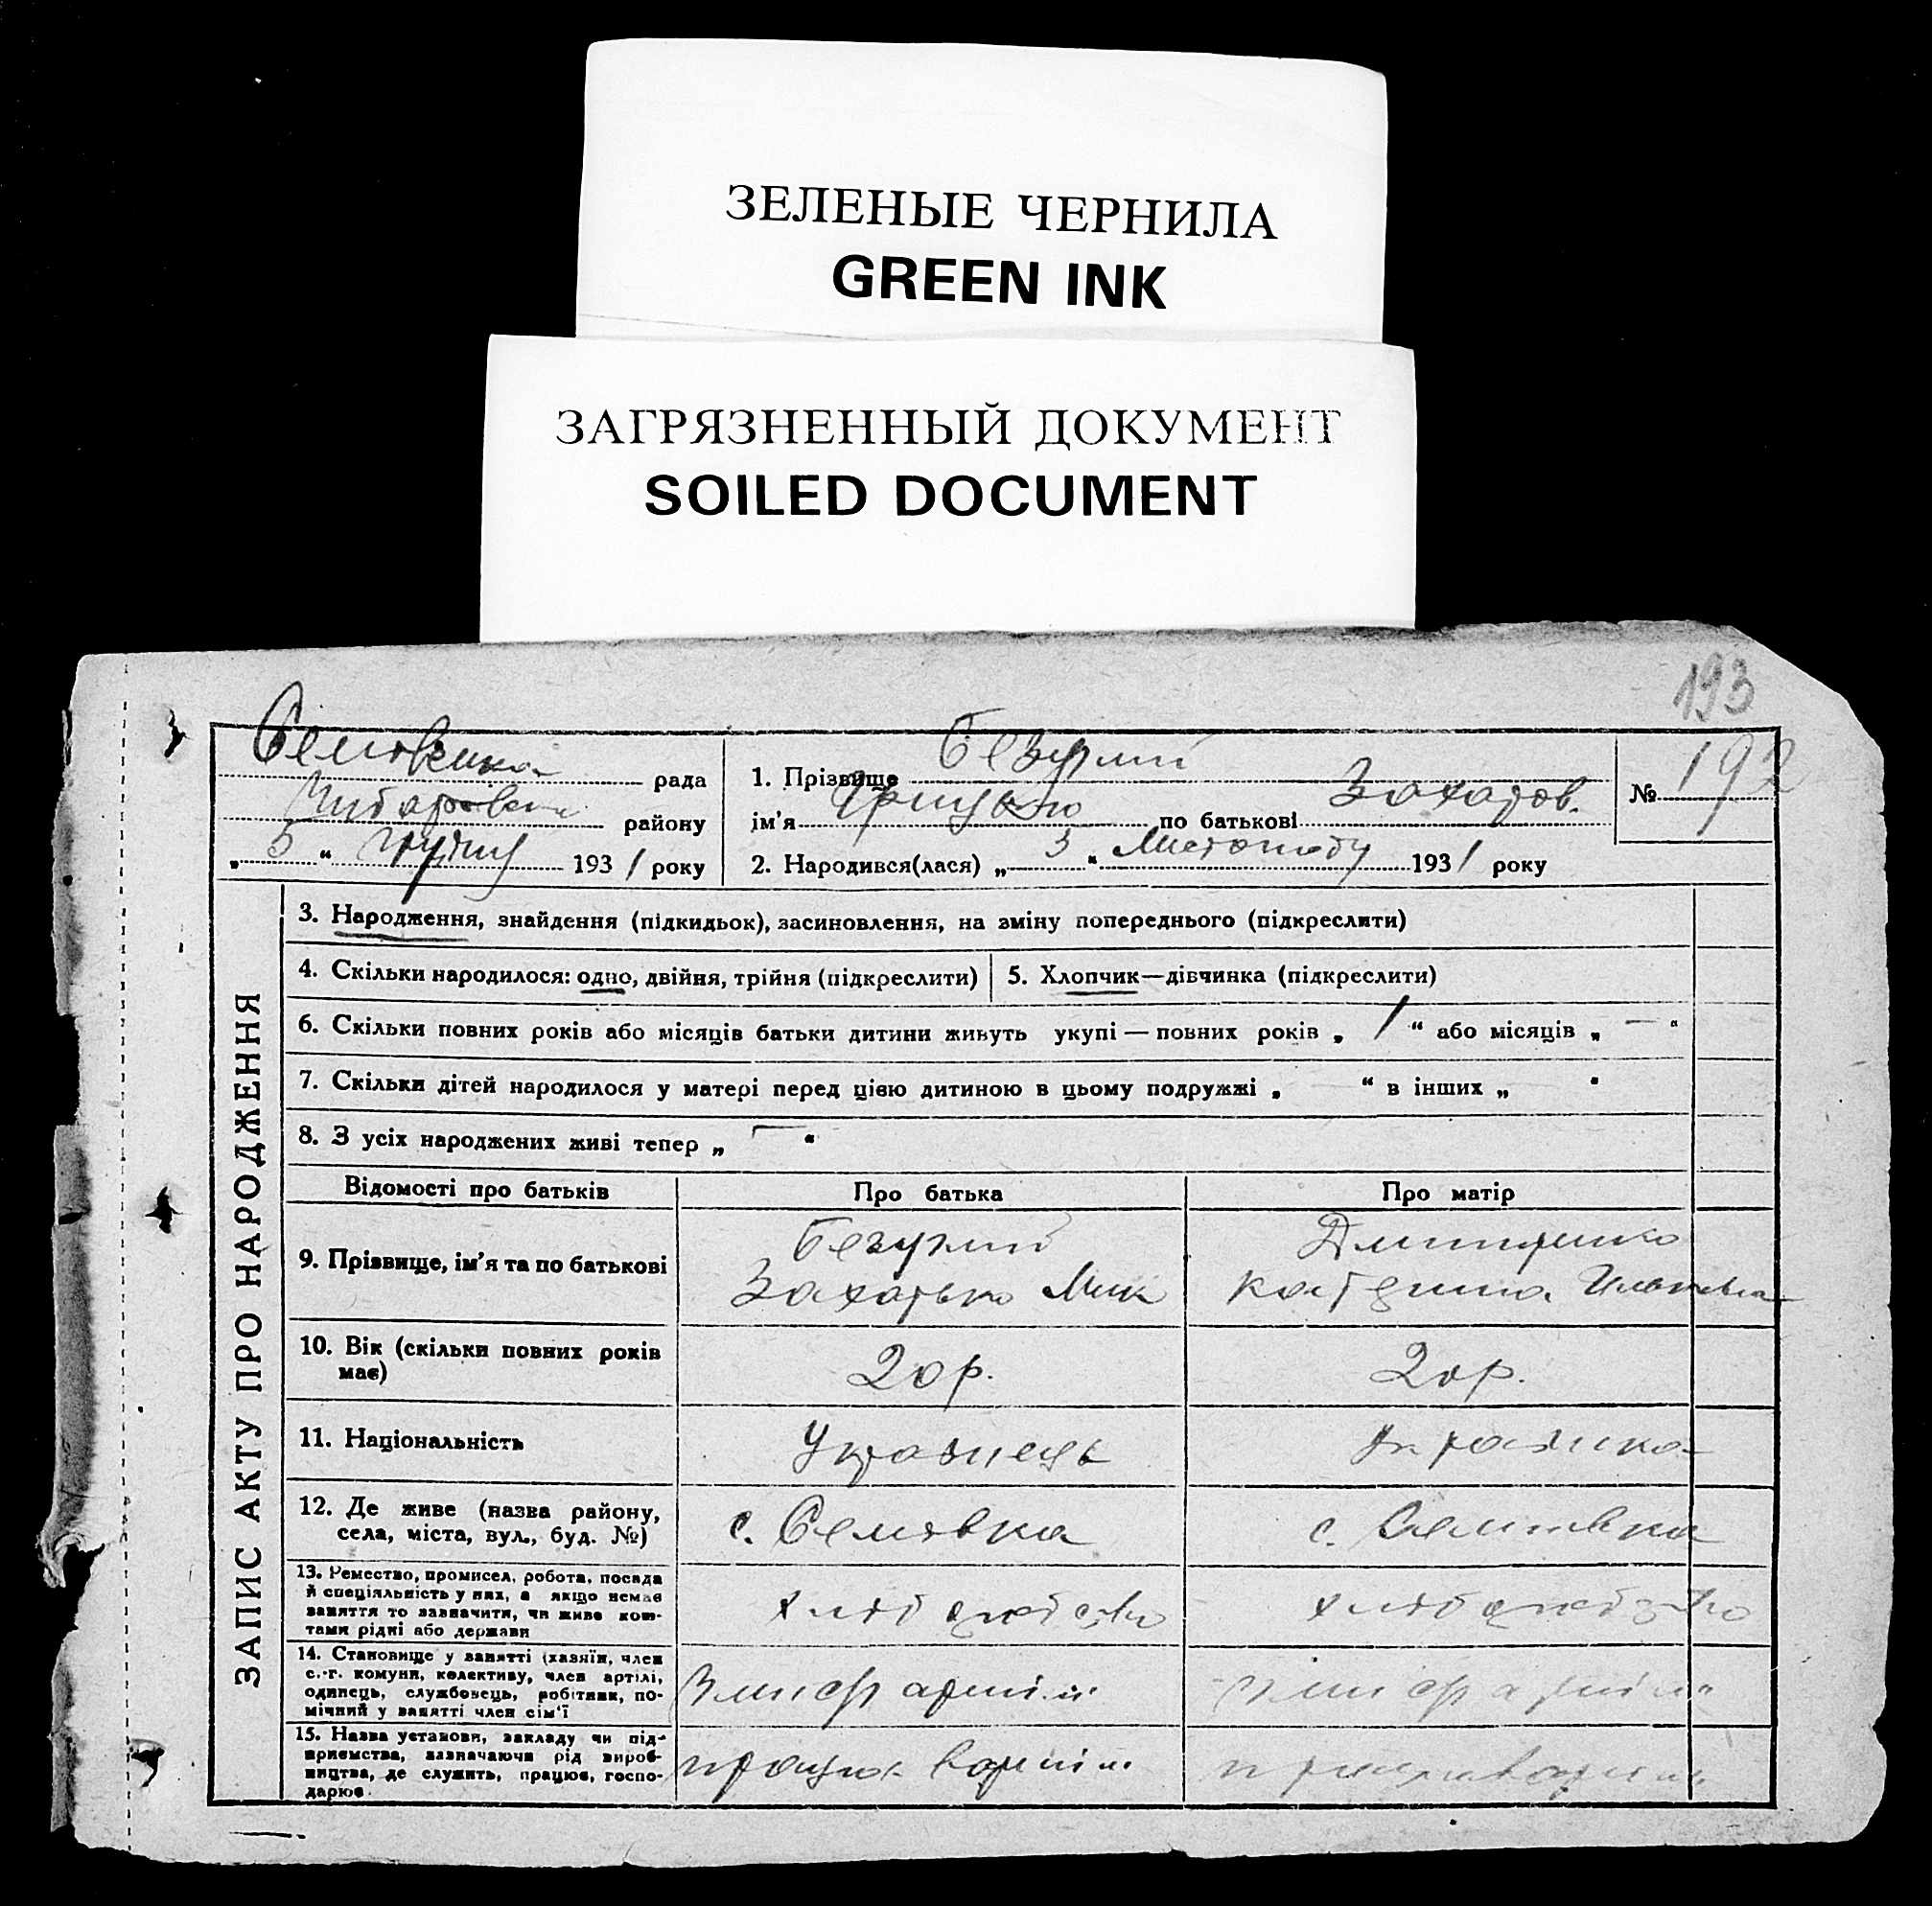 ЗЕЛЕНЫЕ ЧЕРНИЛА
GREEN INK
ЗАГРЯЗНЕННЫЙ ДОКУМЕНТ
SOILED DOCUMENT
193
рада
району
„ 5 “ Грудня 193 1 року
1. Прізвище
ім'я Грицько по батькові Захаров.
2. Народився(лася) „ 3 “ Листопаду 193 1 року
№ 192
ЗАПИС АКТУ ПРО НАРОДЖЕННЯ
3. Народження, знайдення (підкидьок), засиновлення, на зміну попереднього (підкреслити)
4. Скільки народилося: одно, двійня, трійня (підкреслити)
5. Хлопчик—дівчинка (підкреслити)
6. Скільки повних років або місяців батьки дитини живуть укупі — повних років „ 1 “ або місяців „ — “
7. Скільки дітей народилося у матері перед цією дитиною в цьому подружжі „ “ в інших „ “
8. З усіх народжених живі тепер „ — “
Відомості про батьків Про батька Про матір
9. Прізвище, ім'я та по батькові
Захарько Мик
10. Вік (скільки повних років
має)
20 р. 20 р.
11. Національність
Українець Українка
12. Де живе (назва району,
села, міста, вул., буд. №)
с. Семовка с.
13. Ремество, промисел, робота, посада
й спеціяльність у них, а якщо немає
заняття то зазначити, чи живе кош-
тами рідні або держави
14. Становище у занятті (хазяїн, член
с.-г. комуни, колективу, член артілі,
одинець, службовець, робітник, по-
мічний у занятті член сім'ї
15. Назва установи, закладу чи під-
приємства, зазначаючи рід вироб-
ництва, де служить, працює, госпо-
дарює